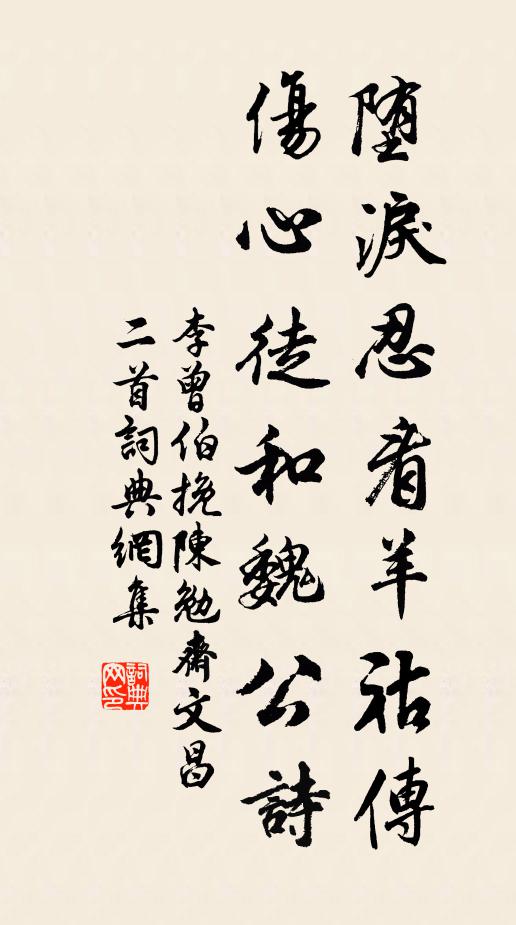 堕淚忍看羊祜傳
傷心徒和魏公詩
李曾伯挽陳勉齋文昌
二首詞典網集
詞典網印